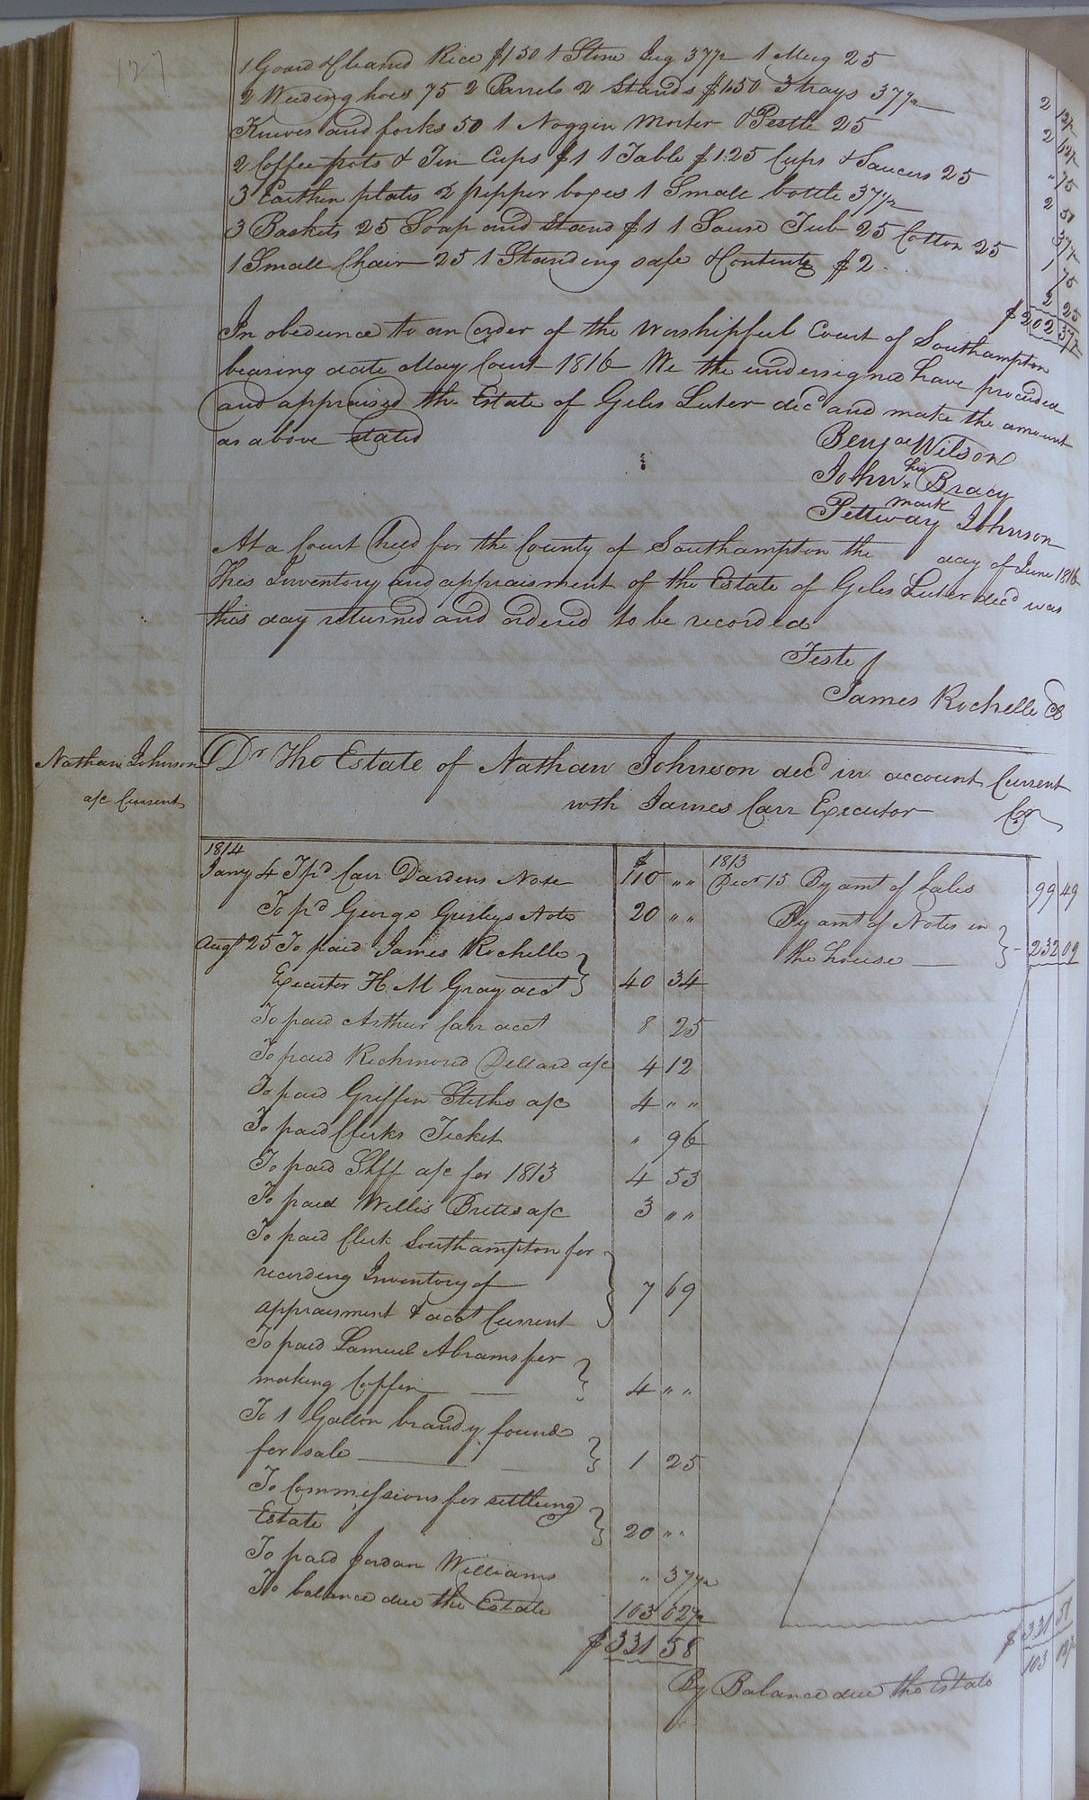 127
1 Goard & Cleaned Rice $1 50 1 Stone Jug 37½ 1 Mug 25 2 12½
2 Weeding hoes 75 2 Barrels 2 Stands $1.50 3 trays 37½ 2 62½
Knives and forks 50 1 Noggin Morter & Pestle 25 " 75
2 Coffee pots & Tin Cups $1 1 Table $1.25 Cups & Saucers 25 2 50
3 Earthen plates 2 pepper boxes 1 Small bottle 37½ 37½
3 Baskets 25 Soap and Stand $1 1 Tub 25 Cotton 25 1 75
1 Small Chair 25 1 Standing safe & Contents $2 2 25
$202 37½
In obedience to an order of the Worshipful Court of Southampton
bearing date May Court 1816 We the undersigned have proceeded
and appraised the Estate of Giles Luter decd and make the amount
as above stated
Benja Wilson
John his x mark Bracy
Pettway Johnson
At a Court held for the County of Southampton the day of June 1816
This Inventory and appraisment of the Estate of Giles Luter decd was
this day returned and ordered to be recorded
Teste
James Rochelle Cl
Nathan Johnson
a/c Current
Dr The Estate of Nathan Johnson decd in account Current
with James Carr Executor Cr
1814 $
Jany 4 To pd Carr Dardens Note 110 " "
To pd George Note 20 " "
Augt 25 To paid James Rochelle
Executor H M Gray acct 40 34
To paid Arthur Carr acct 8 25
To paid Richmond Dillard a/c 4 12
To paid Griffin Stith a/c 4 " "
To paid Clerks Ticket " 96
To paid Shff a/c for 1813 4 53
To paid Willis a/c 3 " "
To paid Clerk Southampton for
recording Inventory of
appraisment & acct Current 7 69
To paid Samuel Abrams for
making Coffin 4 " "
To 1 Gallon brandy found
for sale 1 25
To Commissions for settling
Estate 20 " "
To paid Jordan Williams " 37½
To balance due the Estate 103 62½
$331 58
1813
Decr 15 By amt of Sales 99 49
By amt of Notes in
the house 232 09
$ 331 58
By Balance due the Estate 103